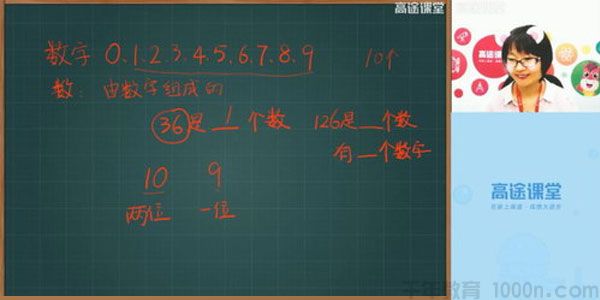 高途课堂
数字 0.1.2.3.4.5.6.7.8.9 10个
数: 由数字组成的
36是 1 个数 126是__个数
有__个数字
10 9
两位 一位
高途课堂
高途课堂
在家上课堂·成绩大进步
千年教育 1000n.com